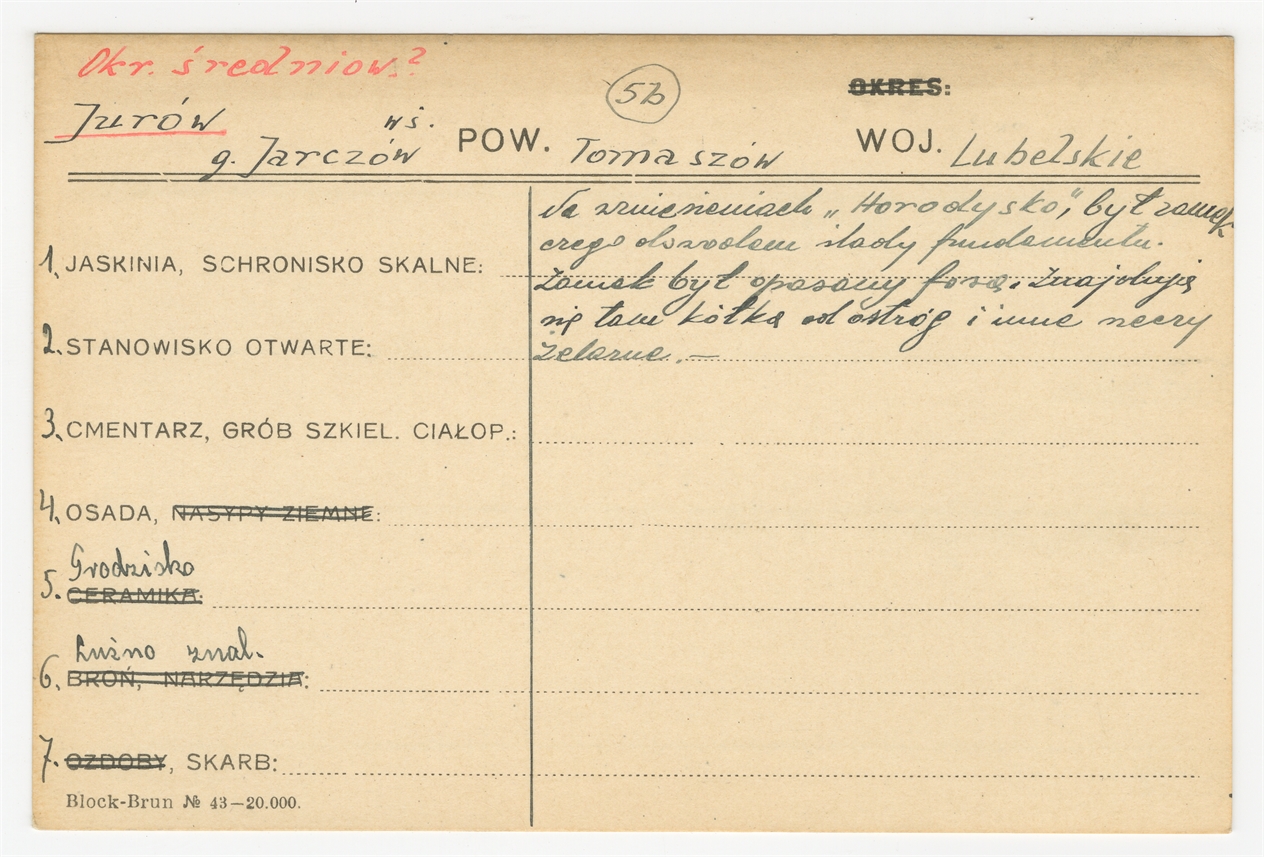 Okr. średniow.?
5b
OKRES:
Jurów wś.
g. Jarczów POW. Tomaszów WOJ. Lubelskie
Na wzniesieniach „Horodysko”, był zamek
czego dowodem ślady fundamentu.
1. JASKINIA, SCHRONISKO SKALNE:
Zamek był opasany fosą. Znajdują
się tam kółka od ostróg i inne rzeczy
2. STANOWISKO OTWARTE:
żelazne. —
3. CMENTARZ, GRÓB SZKIEL. CIAŁOP.:
4. OSADA, NASYPY ZIEMNE:
Grodzisko
5. CERAMIKA:
Luźno znal.
6. BROŃ, NARZĘDZIA:
7. OZDOBY, SKARB:
Block-Brun № 43—20.000.